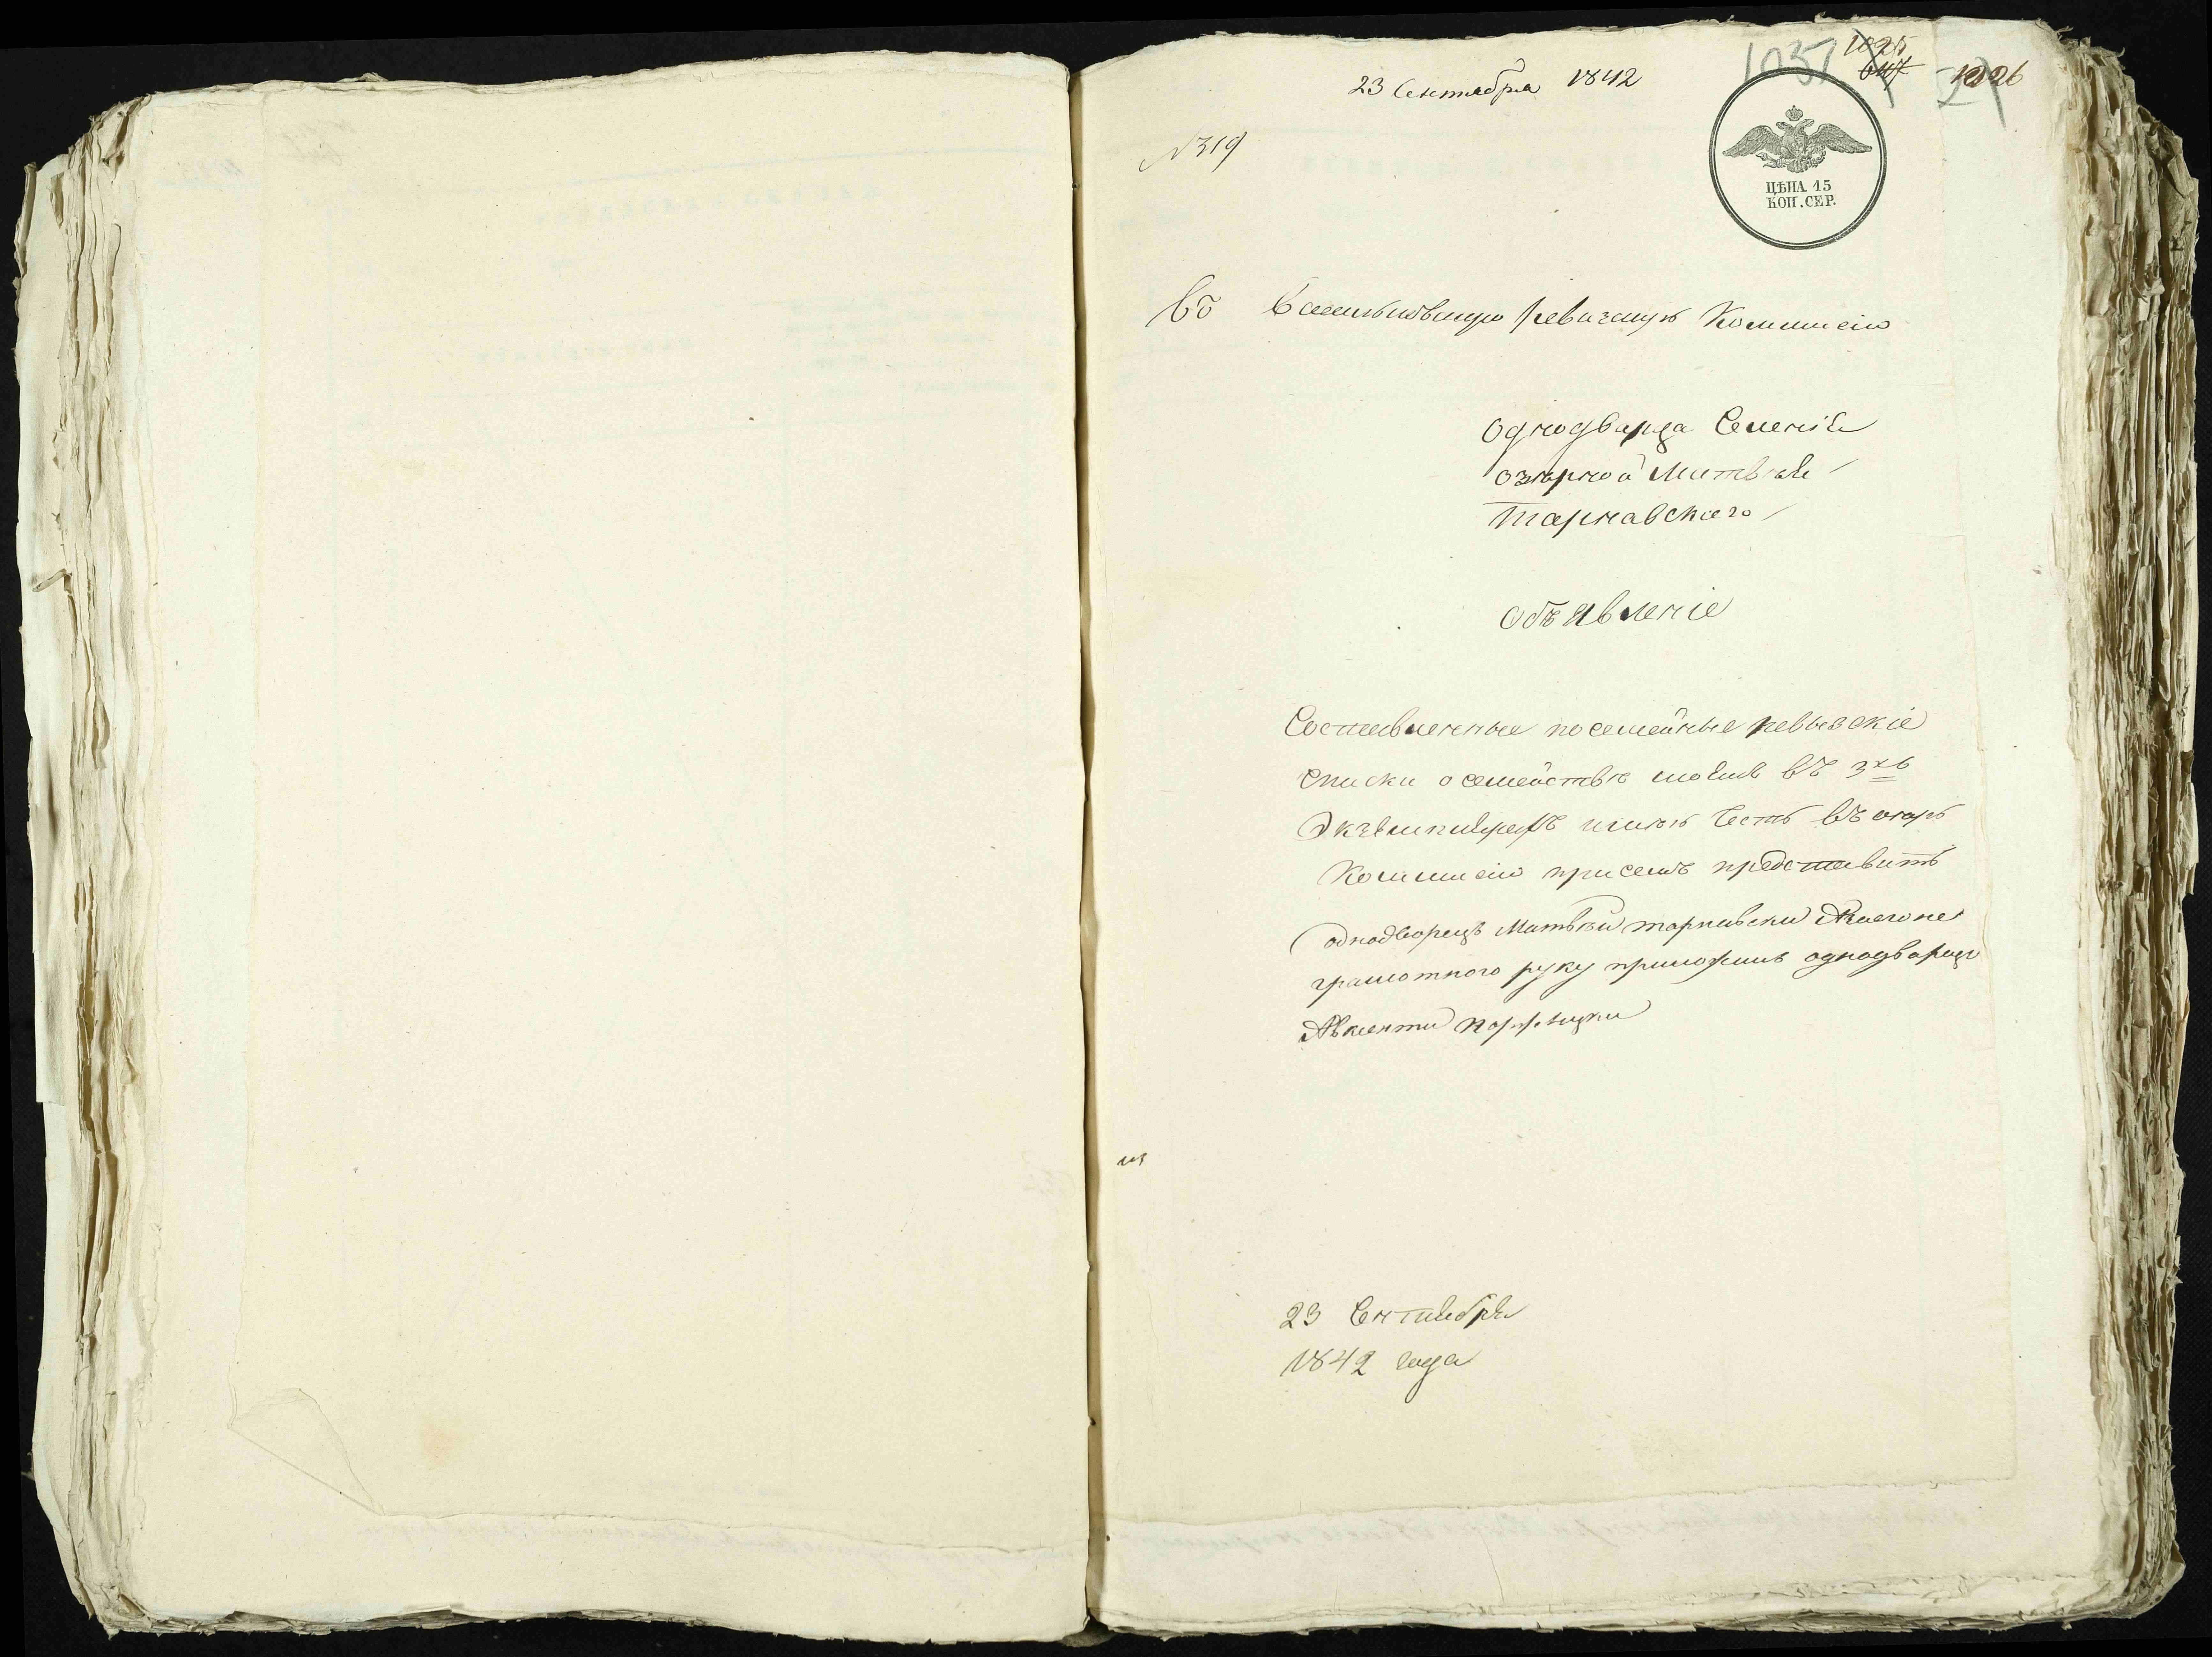 23 Сентября 1842
1037
1025
1026
N 319
ЦѢНА 15
КОП. СЕР.
Въ Васильковскую Ревизскую Коммисію
Однодварца Селенія
Озирной Матвѣя
Тарнавского
Объявленіе
Составленные посемейные ревызскіе
списки о семействѣ моемъ въ 3хъ
Экземплярахъ имѣю Честь въ оную
Коммисію присемъ представить
однодворецъ Матвѣй тарнавски А за его не
грамотного руку приложивъ однодворецъ
Авксенти
23 Сентября
1842 года